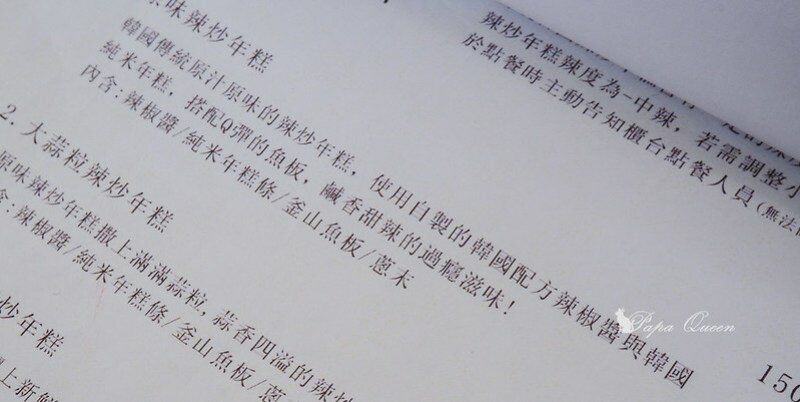 味辣炒年糕
韓國傳統原汁原味的辣炒年糕，使用自製的韓國配方辣椒醬與韓國
純米年糕，搭配Q彈的魚板，鹹香甜辣的過癮滋味！
內含:辣椒醬/純米年糕條/釜山魚板/蔥末
150
2. 大蒜粒辣炒年糕
原味辣炒年糕撒上滿滿蒜粒，蒜香四溢的辣炒
含:辣椒醬/純米年糕條/釜山魚板/蔥
炒年糕
上新鮮
辣炒年糕辣度為-中辣，若需調整小
於點餐時主動告知櫃台點餐人員(無法
Papa Queen